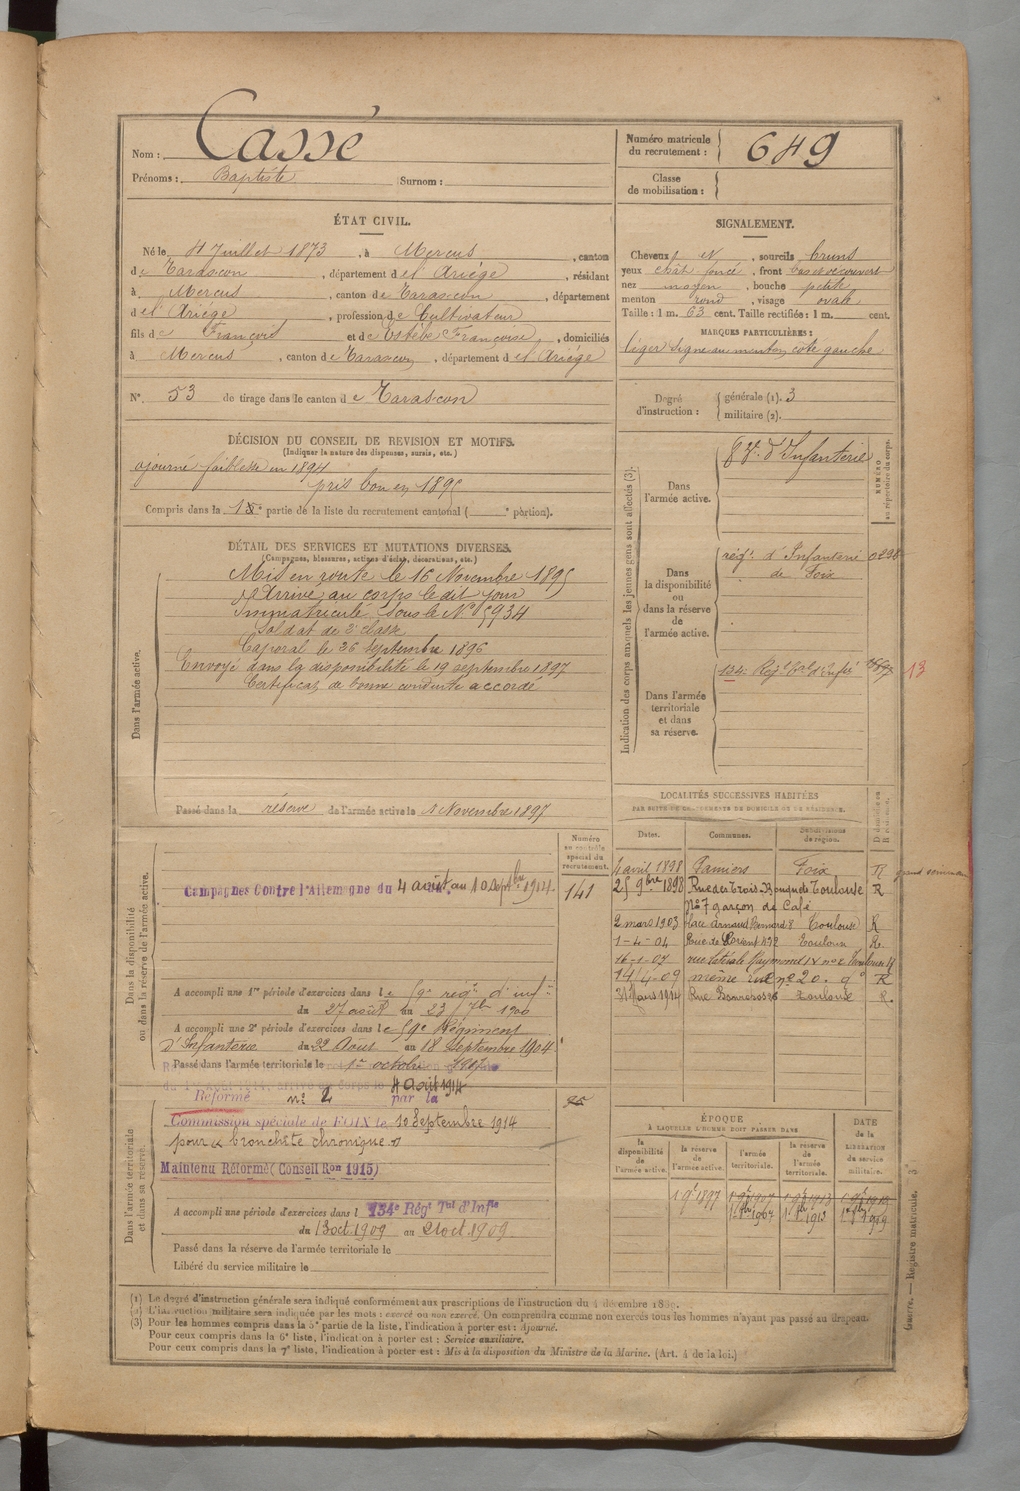 Nom : Cassé
Prénoms : Baptiste Surnom :
Numéro matricule du recrutement : 649
Classe de mobilisation :
ÉTAT CIVIL.
Né le 4 Juillet 1873, à Mercus, canton
de Tarascon, département del Ariége, résidant
à Mercus, canton de Tarascon, département
del Ariége, profession de Cultivateur
fils de François et de Estèbe Françoise, domiciliés
à Mercus, canton de Tarascon, département del Ariége
N°. 53 de tirage dans le canton de Tarascon
SIGNALEMENT.
Cheveux N, sourcils bruns
yeux chât foncé, front bas et découvert
nez moyen, bouche petite
menton rond, visage ovale
Taille : 1 m. 63 cent. Taille rectifiée : 1 m. cent.
MARQUES PARTICULIÈRES :
léger signe au menton côté gauche
Degré d'instruction : générale (1). 3
militaire (2).
DÉCISION DU CONSEIL DE REVISION ET MOTIFS.
(Indiquer la nature des dispenses, sursis, etc.)
ajourné faiblesse en 1894
pris bon en 1895
Compris dans la partie de la liste du recrutement cantonal ( e portion).
DÉTAIL DES SERVICES ET MUTATIONS DIVERSES.
(Campagnes, blessures, actions d'éclat, décorations, etc.)
Dans l'armée active.
Mis en route le 16 Novembre 1895
Arrivé au corps le dit jour
Immatriculé sous le N° 5934
Soldat de 2e classe
Caporal le 26 septembre 1896
Envoyé dans la disponibilité le 19 septembre 1897
Certificat de bonne conduite accordé
Passé dans la réserve de l'armée active le 1 Novembre 1897
Indication des corps auxquels les jeunes gens sont affectés (3).
NUMÉRO au répertoire du corps.
Dans l'armée active.
d'Infanterie
Dans la disponibilité ou dans la réserve de l'armée active.
régt. d'Infanterie
de Foix
Dans l'armée territoriale et dans sa réserve.
134e Régt tal d'Infie
13
LOCALITÉS SUCCESSIVES HABITÉES
PAR SUITE DE CHANGEMENTS DE DOMICILE OU DE RÉSIDENCE.
Dates. Communes. Subdivisions de région. D domicile ou R résidence.
avril 1898 Pamiers Foix R
25 9bre 1898 Rue des Trois Toulouse R
N° 7 garçon de Café
2 mars 1903 place Arnaud Bernard 8 Toulouse R
1-4-04 Rue de Toulouse R
16-1-07 rue
14-4-09 même rue n° 20. d° R
31 Mars 1914 Rue Toulouse R.
Dans la disponibilité ou dans la réserve de l'armée active.
Numéro au contrôle spécial du recrutement.
Campagnes Contre l'Allemagne du 4 août au 10 Septbre 1914.
141
A accompli une 1re période d'exercices dans le 59e régt d'infie
du 27 août au 23 7bre 1900
A accompli une 2e période d'exercices dans le 59e Régiment
d'Infanterie du 22 Août au 18 Septembre 1904
Passé dans l'armée territoriale le 1er octobre 1907
4 août 1914
Dans l'armée territoriale et dans sa réserve.
Réformé n° 2 par la
Commission spéciale de FOIX le 10 Septembre 1914
pour bronchite chronique
Maintenu Réformé (Conseil Ron 1915)
A accompli une période d'exercices dans l 134e Régt Tal d'Infie
du 13 oct 1909 au 21 oct. 1909
Passé dans la réserve de l'armée territoriale le
Libéré du service militaire le
ÉPOQUE
À LAQUELLE L'HOMME DOIT PASSER DANS
la disponibilité de l'armée active.
la réserve de l'armée active.
l'armée territoriale.
la réserve de l'armée territoriale.
DATE de la LIBÉRATION du service militaire.
1 9e 1897 1 9e 1907 1 9e 1913
Guerre. — Registre matricule.
(1) Le degré d'instruction générale sera indiqué conformément aux prescriptions de l'instruction du 4 décembre 1889.
(2) L'instruction militaire sera indiquée par les mots : exercé ou non exercé. On comprendra comme non exercés tous les hommes n'ayant pas passé au drapeau.
(3) Pour les hommes compris dans la 5e partie de la liste, l'indication à porter est : Ajourné.
Pour ceux compris dans la 6e liste, l'indication à porter est : Service auxiliaire.
Pour ceux compris dans la 7e liste, l'indication à porter est : Mis à la disposition du Ministre de la Marine. (Art. 4 de la loi.)